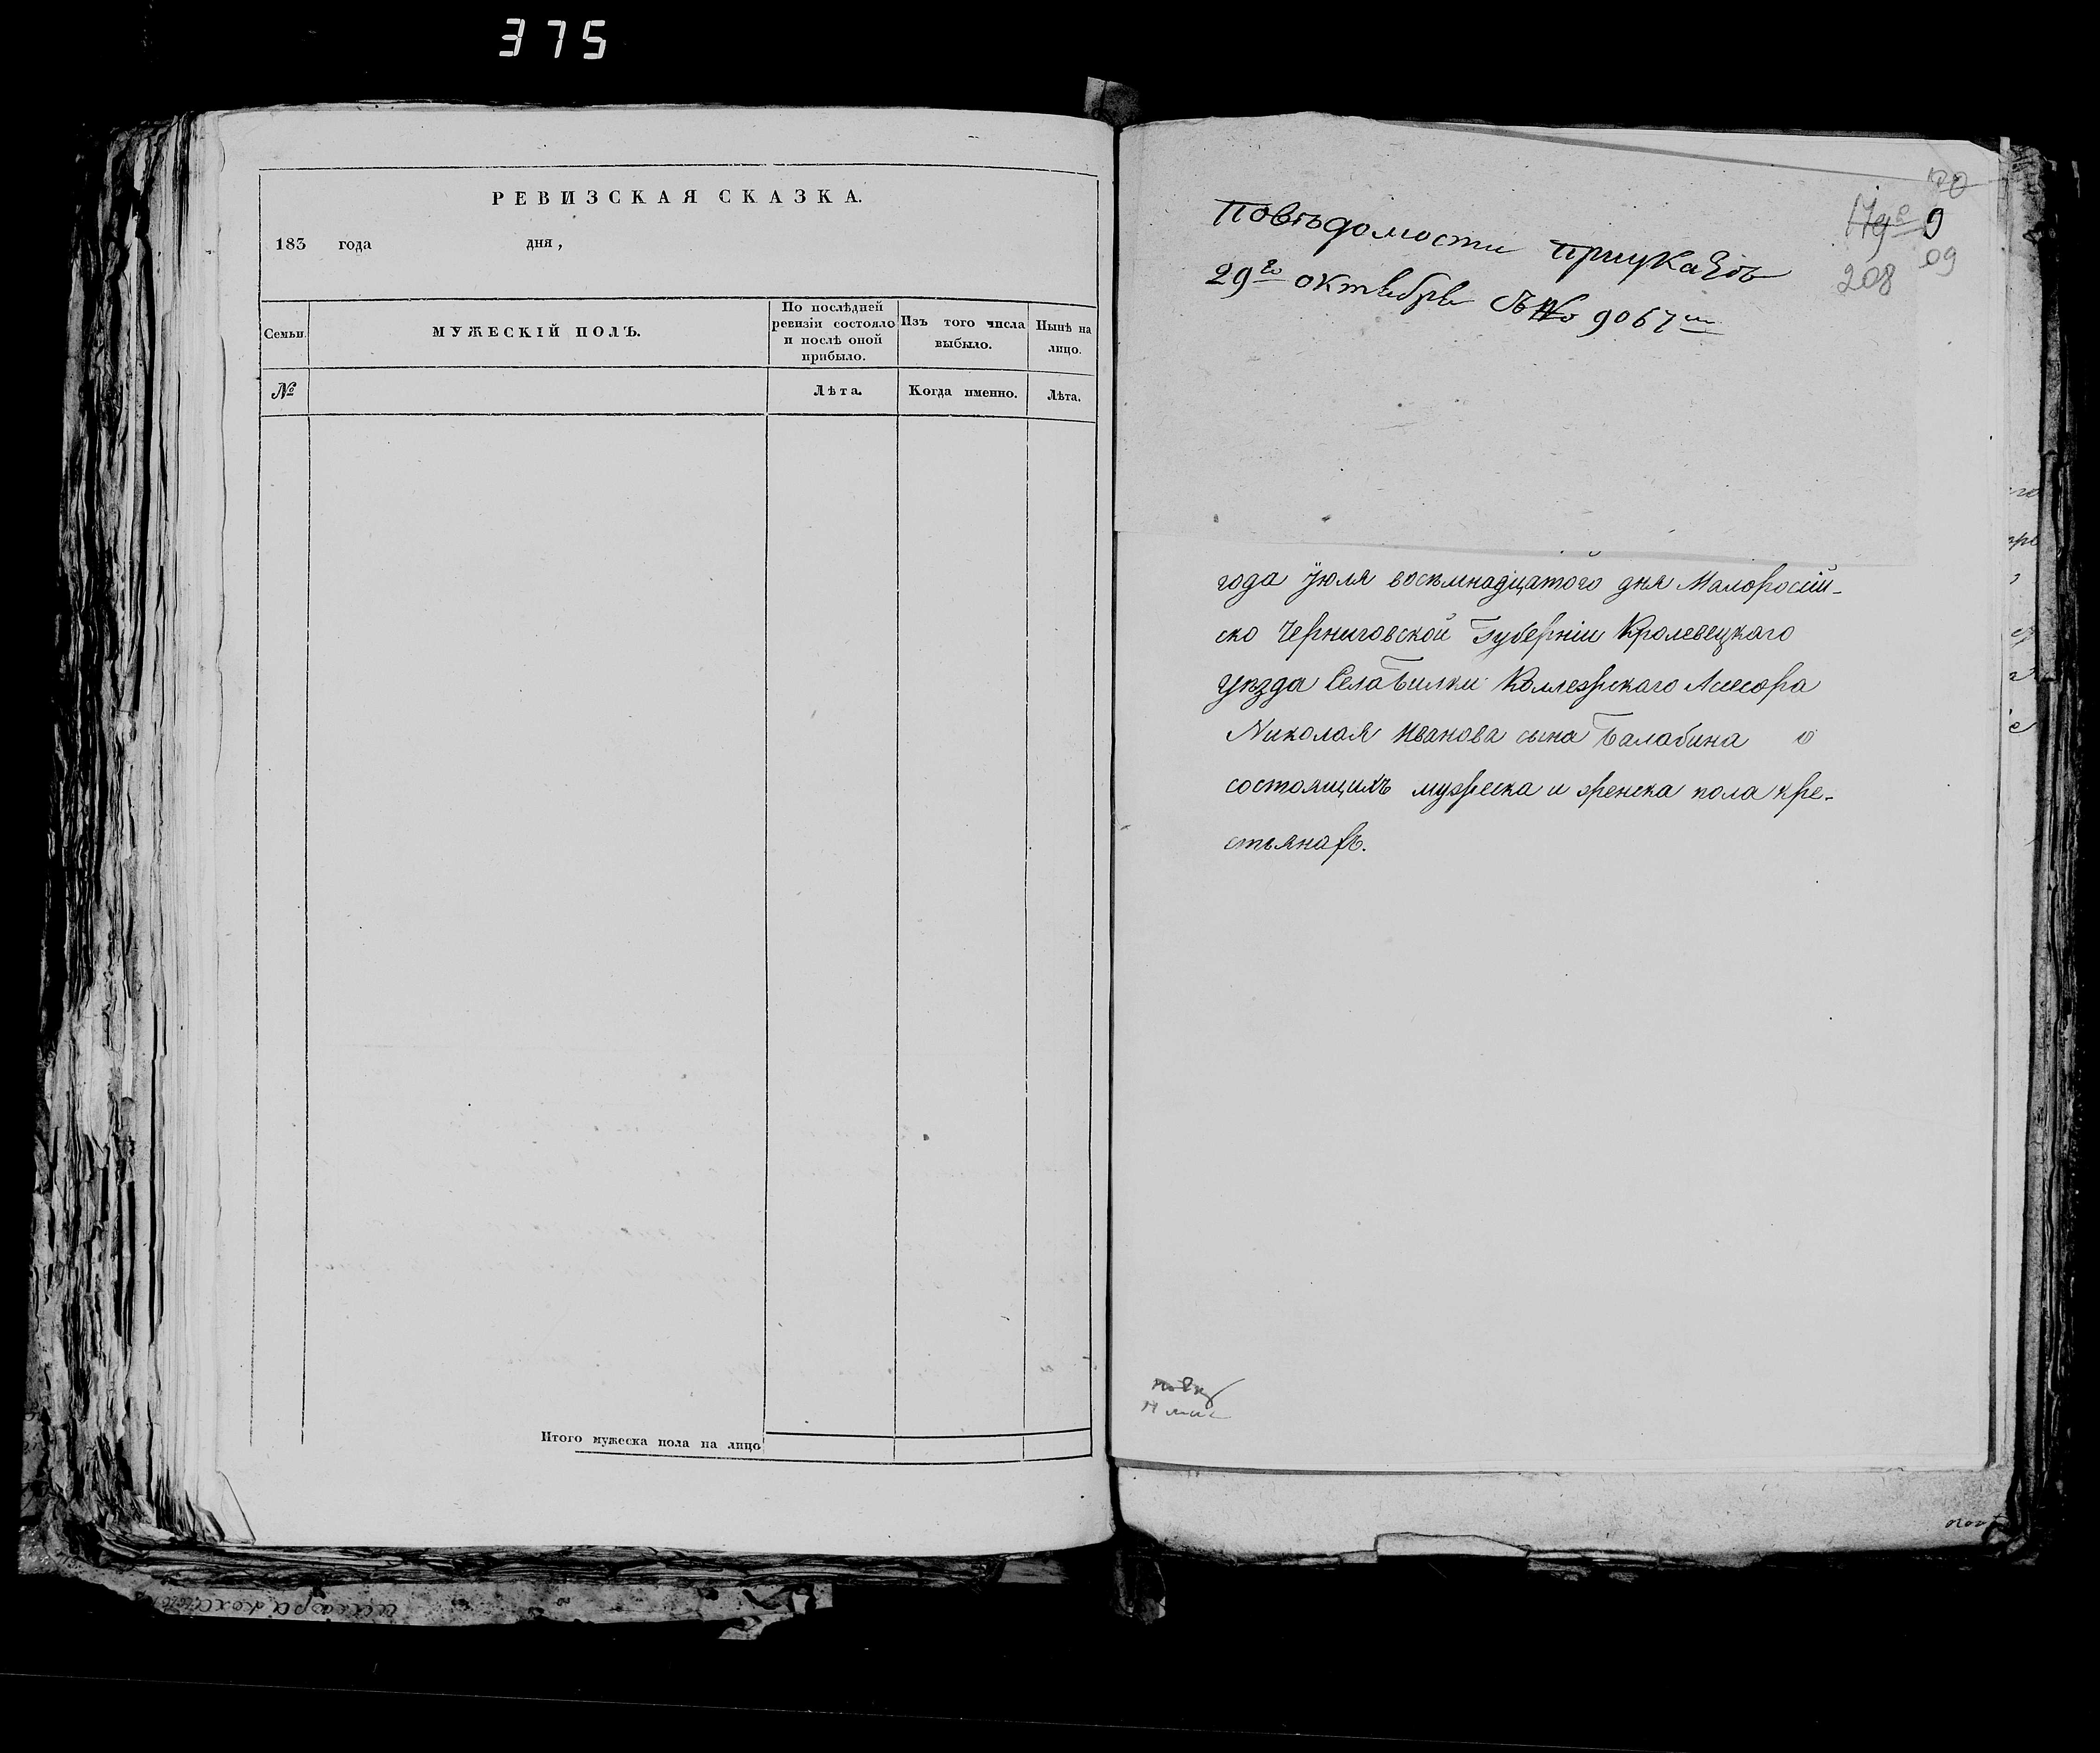 375
РЕВИЗСКАЯ СКАЗКА.
183 года дня,
Семьи.
МУЖЕСКІЙ ПОЛЪ.
По послѣдней
ревизіи состояло
и послѣ оной
прибыло.
Изъ того числа
выбыло.
Нынѣ на
лицо.
№
Лѣта.
Когда именно.
Лѣта.
Итого мужеска пола на лицо
9
208
09
Повѣдомости приуказѣ
29го октября съ № 9067м
года Іюля восемнадцатого дня Малоросій-
ско Черниговской Губерніи Кролевецкаго
уѣзда Села Билки Коллежскаго Асесора
Николая Иванова сына Балабина о
состоящихъ мужеска и женска пола кре-
стьянахъ.